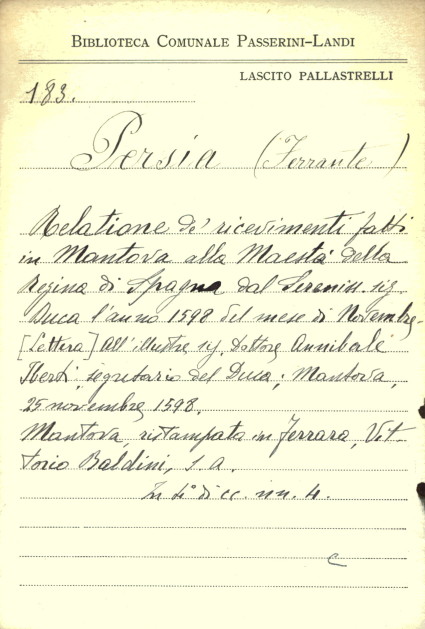 BIBLIOTECA COMUNALE PASSERINI-LANDI
LASCITO PALLASTRELLI
183.
Persia (Ferrante)
Relatione de' ricevimenti fatti
in Mantova alla Maestà della
Regina di Spagna dal Sereniss. sig.
Duca l'anno 1598 del mese di Novembre.
[Lettera] All'illustre sig. Dottore Annibale
Iberti, segretario del Duca; Mantova,
25 novembre 1598.
Mantova, ristampata in Ferrara, Vit-
torio Baldini, s. a.
In 4° di cc. nn. 4.
C